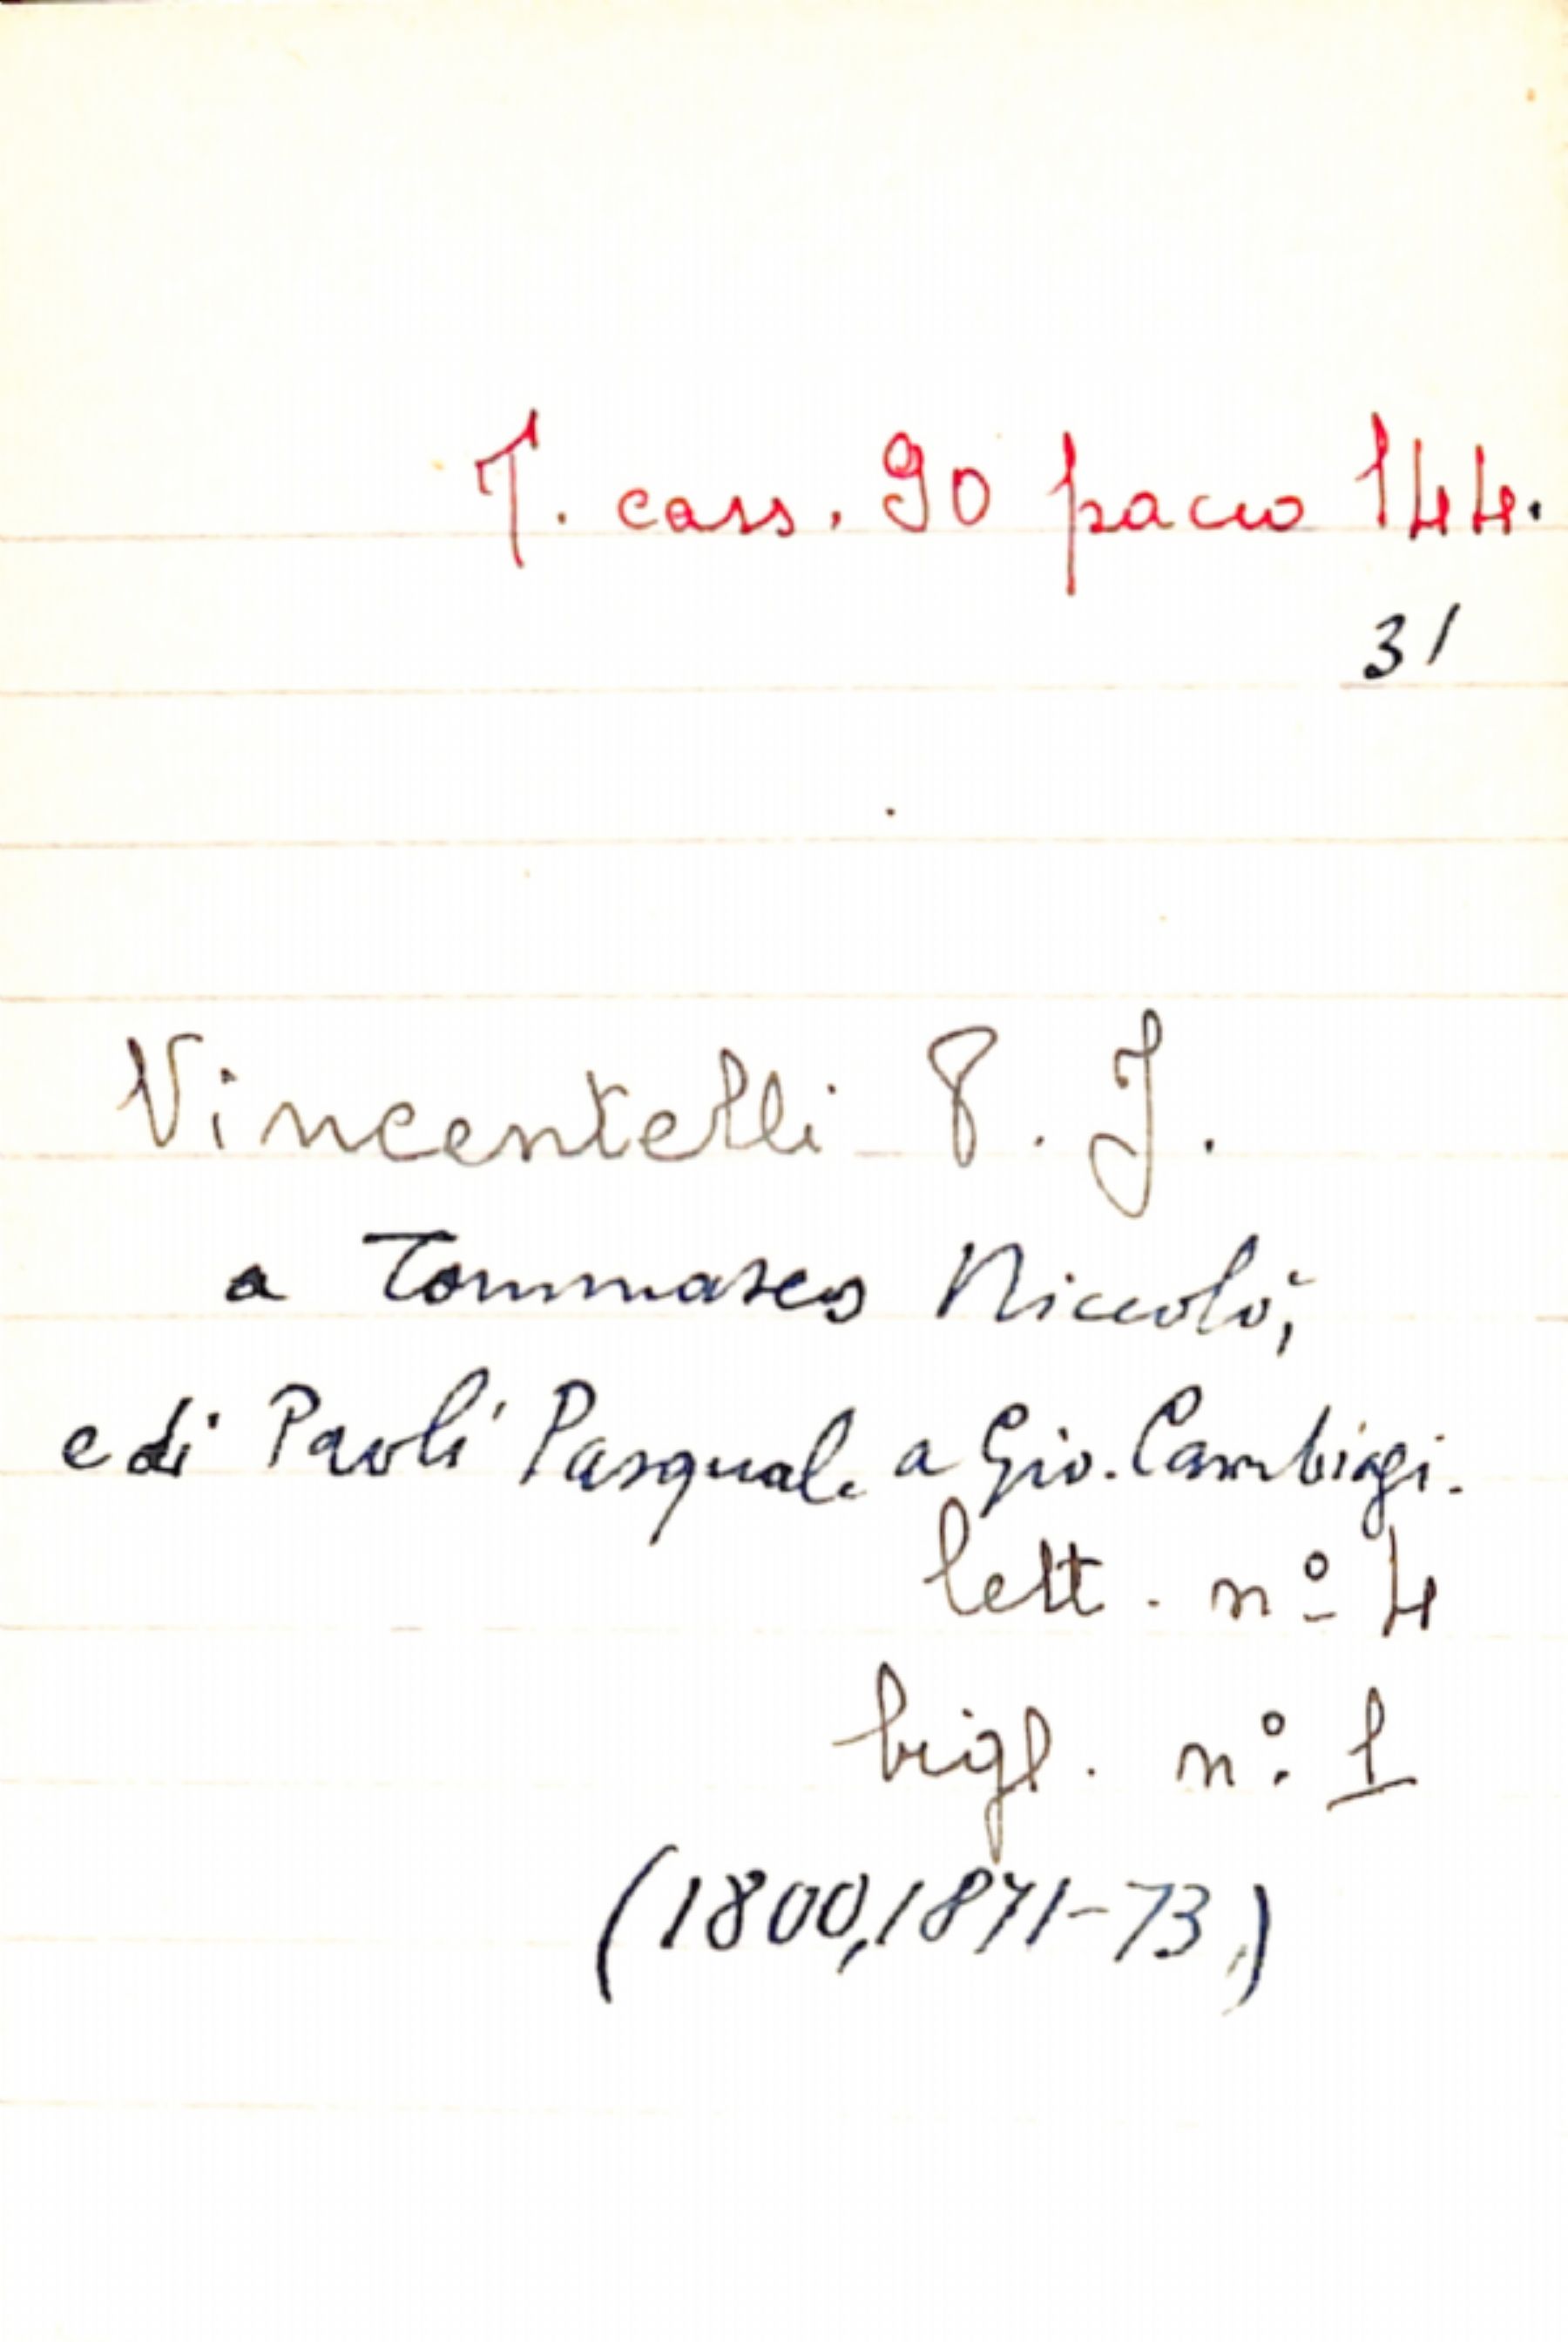 T. cass. 90 pacco 144.
31
Vincentelli P. J.
a Tommaseo Niccolò,
e di Paoli Pasquale a Gio. Cambiagi.
lett. nº 4
bigl. nº. 1
(1800,1871-73,)